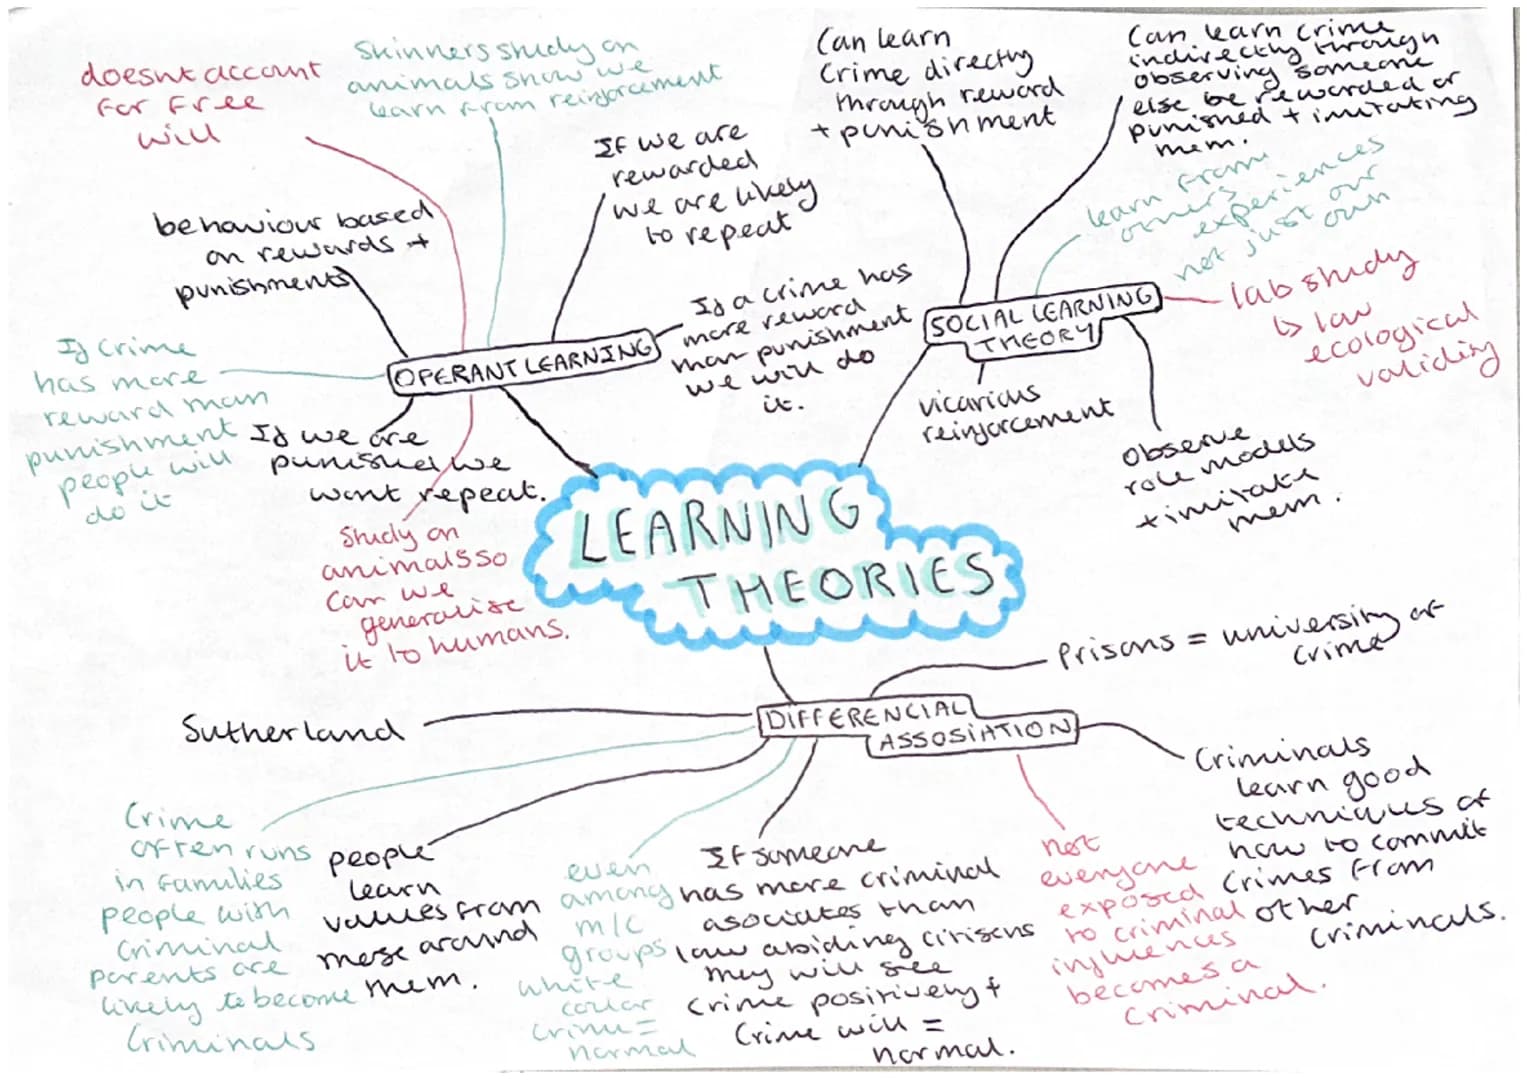 LEARNING
THEORIES
OPERANT LEARNING
doesnt account
for free
will
Skinners study on
animals show we
learn from reinforcement
If we are
rewarded
we are likely
to repeat
behaviour based
on rewards +
punishments
If a crime has
more reward
than punishment
we will do
it.
If crime
has more
reward than
punishment
people will
do it
If we are
punished we
wont repeat.
Study on
animals so
can we
generalise
it to humans.
SOCIAL LEARNING
THEORY
Can learn
crime directly
through reward
+ punishment
Can learn crime
indirectly through
observing someone
else be rewarded or
punished + imitating
them.
learn from
others
experiences
not just our
own
lab study
↳ low
ecological
validity
vicarious
reinforcement
Observe
role models
+ imitate
them.
DIFFERENCIAL
ASSOSIATION
Prisons = university of
crime
Sutherland
Criminals
learn good
techniques of
how to commit
crimes from
other
criminals.
Crime
often runs
in families
people with
criminal
parents are
likely to become
criminals
people
learn
values from
those around
them.
even
among
m/c
groups
white
collar
crime =
normal
If someone
has more criminal
asociates than
law abiding citisens
they will see
crime positively +
crime will =
normal.
not
everyone
exposed
to criminal
influences
becomes a
criminal.